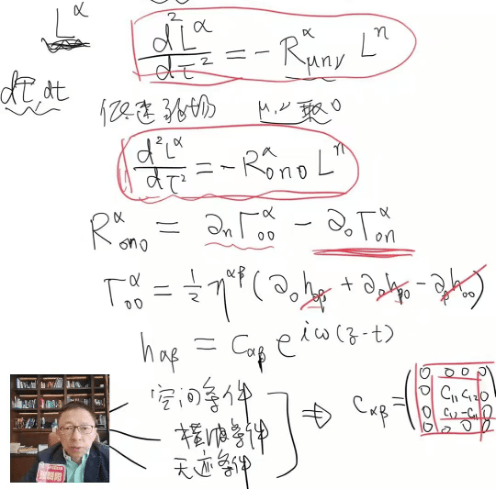 L^α d²L^α/dτ² = - R^α_{μην} L^η
dτ, dt 低速弱场 μ,ν取0
d²L^α/dτ² = - R^α_{0η0} L^η
R^α_{0η0} = ∂_η Γ^α_{00} - ∂_0 Γ^α_{0η}
Γ^α_{00} = 1/2 η^{αβ} (∂_0 h_{0β} + ∂_0 h_{β0} - ∂_β h_{00})
h_{αβ} = C_{αβ} e^{iω(z-t)}
空间条件
横波条件 ⇒ C_{αβ} = (0 0 0 0
0 C_{11} C_{12} 0
0 C_{12} -C_{11} 0
0 0 0 0)
无迹条件